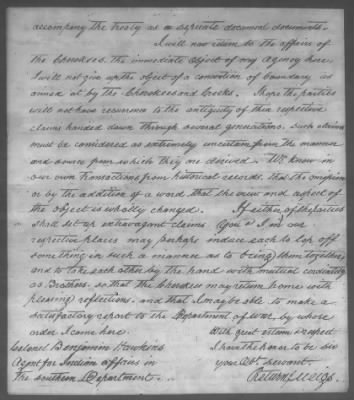 accompany the treaty as a seperate document documents.
I will now return to the affairs of
the Cherokees, the immediate object of my agency here.
I will not give up the object of a convention of boundary as
aimed at by the Cherokees and Creeks. I hope the parties
will not have recurrence to the antiquity of their respective
claims handed down through several generations, such claims
must be considered as extremely uncertain from the manner
and source from which they are derived. We know in
our own transactions from historical records, that the omission
or by the addition of a word that the view and aspect of
the object is wholly changed. If either of the parties
shall set up extravagant claims you & I in our
respective places may perhaps induce each to lop off
something in such a manner as to bring them together,
and to take each other by the hand with mutual cordiality
as Brothers, so that the Cherokees may return home with
pleasing reflections, and that I may be able to make a
satisfactory report to the Department of War, by whose
order I came here. With great esteem & respect
Colonel Benjamin Hawkins I have the honor to be sir
Agent for Indian affairs in your Obt. servant.
the southern Department. Return J. Meigs.